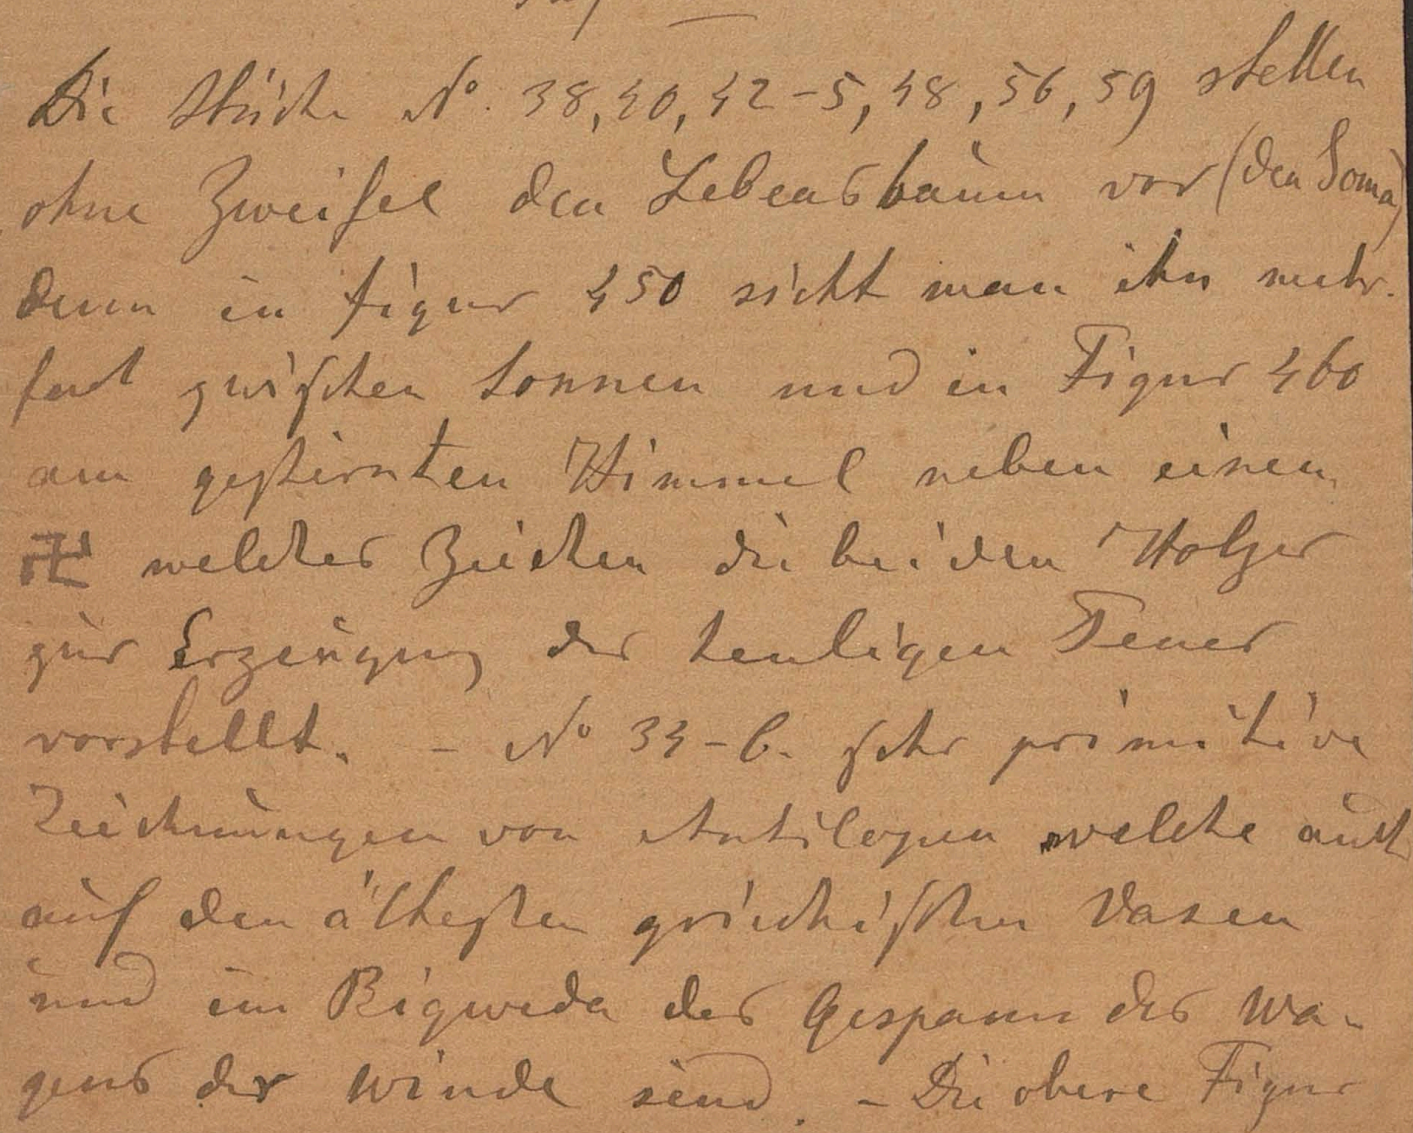 Die Stücke No. 38, 40, 42-5, 48, 56, 59 stellen
ohne Zweifel den Lebensbaum vor (den Soma)
denn in Figur 450 sieht man ihn mehr-
fach zwischen Sonnen und in Figur 460
am gestirnten Himmel neben einem
卍 welches Zeichen die beiden Holzer
zur Erzeugung des heuligen Feuer
vorstellt. – No 34-6. sehr primitive
Zeichnungen von Antilopen welche auch
auf den ältesten griechischen Vasen
und im Rigweda das Gespann des Wa-
gens der Winde sind. – Die obere Figur